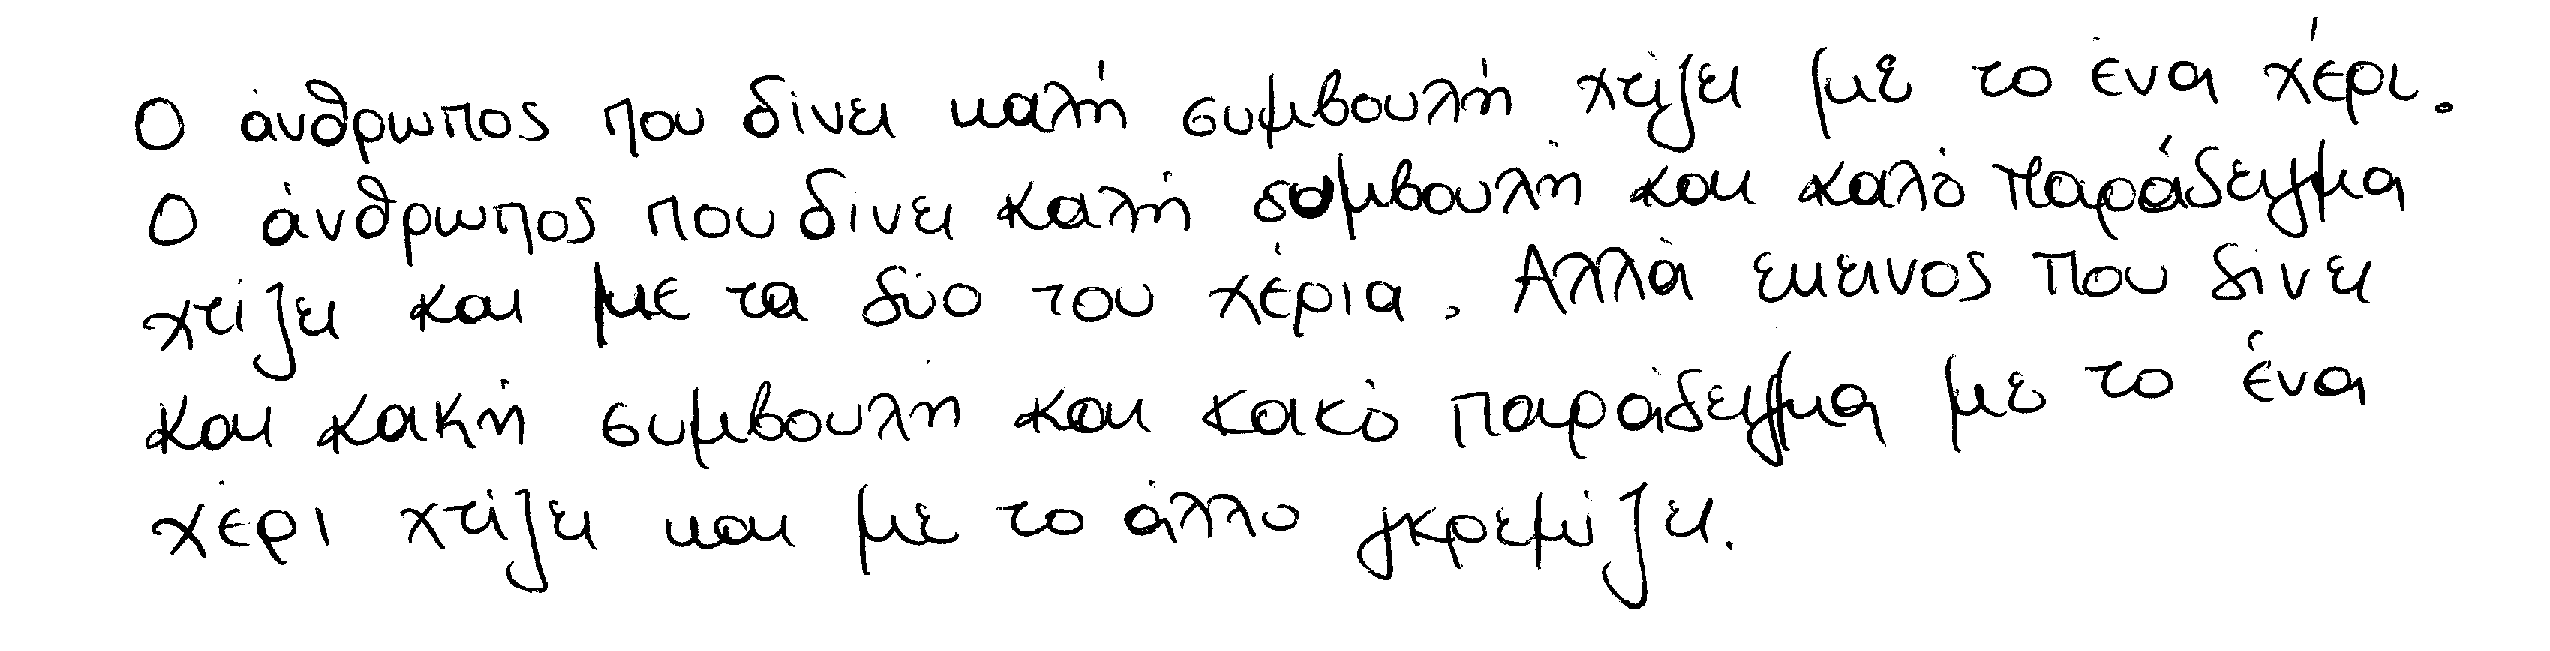 Ο άνθρωπος που δίνει καλή συμβουλή χτίζει με το ένα χέρι.
Ο άνθρωπος που δίνει καλή συμβουλή και καλό παράδειγμα
χτίζει και με τα δύο του χέρια. Αλλά εκεινος που δίνει
και κακή συμβουλή και κακό παράδειγμα με το ένα
χέρι χτίζει και με το άλλο γκρεμίζει.